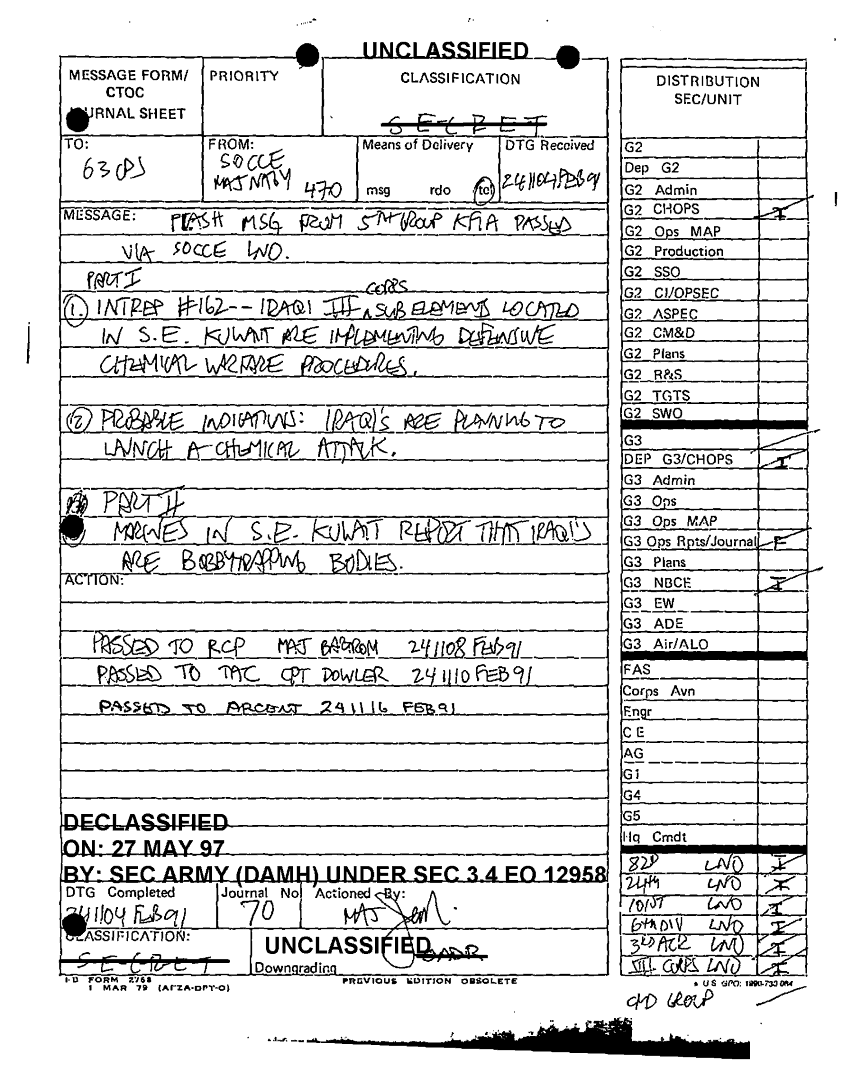 UNCLASSIFIED
MESSAGE FORM/
CTOC
JOURNAL SHEET
PRIORITY
CLASSIFICATION
SECRET
TO:
63 CPS
FROM:
SOCCE
MAJ NABY 470
Means of Delivery
msg rdo tel
DTG Received
241104FEB91
MESSAGE: FLASH MSG FROM 5TH GROUP KFIA PASSED
VIA SOCCE LNO.
PART I
1. INTREP #162-- IRAQI III CORPS SUB ELEMENTS LOCATED
IN S.E. KUWAIT ARE IMPLEMENTING DEFENSIVE
CHEMICAL WARFARE PROCEDURES.
2 PROBABLE INDICATIONS: IRAQI'S ARE PLANNING TO
LAUNCH A CHEMICAL ATTACK.
PART II
MARINES IN S.E. KUWAIT REPORT THAT IRAQI'S
ARE BOBBYTRAPPING BODIES.
ACTION:
PASSED TO RCP MAJ 241108 FEB91
PASSED TO TAC CPT DOWLER 241110 FEB91
PASSED TO ARCENT 241116 FEB91
DECLASSIFIED
ON: 27 MAY 97
BY: SEC ARMY (DAMH) UNDER SEC 3.4 EO 12958
DTG Completed
241104 FEB91
Journal No
70
Actioned By:
MAJ
CLASSIFICATION:
SECRET
UNCLASSIFIED
OADR
Downgrading
FORM 2768
1 MAR 79 (AFZA-DPT-O)
PREVIOUS EDITION OBSOLETE
DISTRIBUTION
SEC/UNIT
G2
Dep G2
G2 Admin
G2 CHOPS I
G2 Ops MAP
G2 Production
G2 SSO
G2 CI/OPSEC
G2 ASPEC
G2 CM&D
G2 Plans
G2 R&S
G2 TGTS
G2 SWO
G3
DEP G3/CHOPS I
G3 Admin
G3 Ops
G3 Ops MAP
G3 Ops Rpts/Journal F
G3 Plans
G3 NBCE I
G3 EW
G3 ADE
G3 Air/ALO
FAS
Corps Avn
Engr
C E
AG
G1
G4
G5
Hq Cmdt
82D LNO I
24TH LNO I
101ST LNO I
6TH DIV LNO I
3RD ACR LNO I
CORPS LNO I
* US GPO: 1990-733-084
CMD GROUP